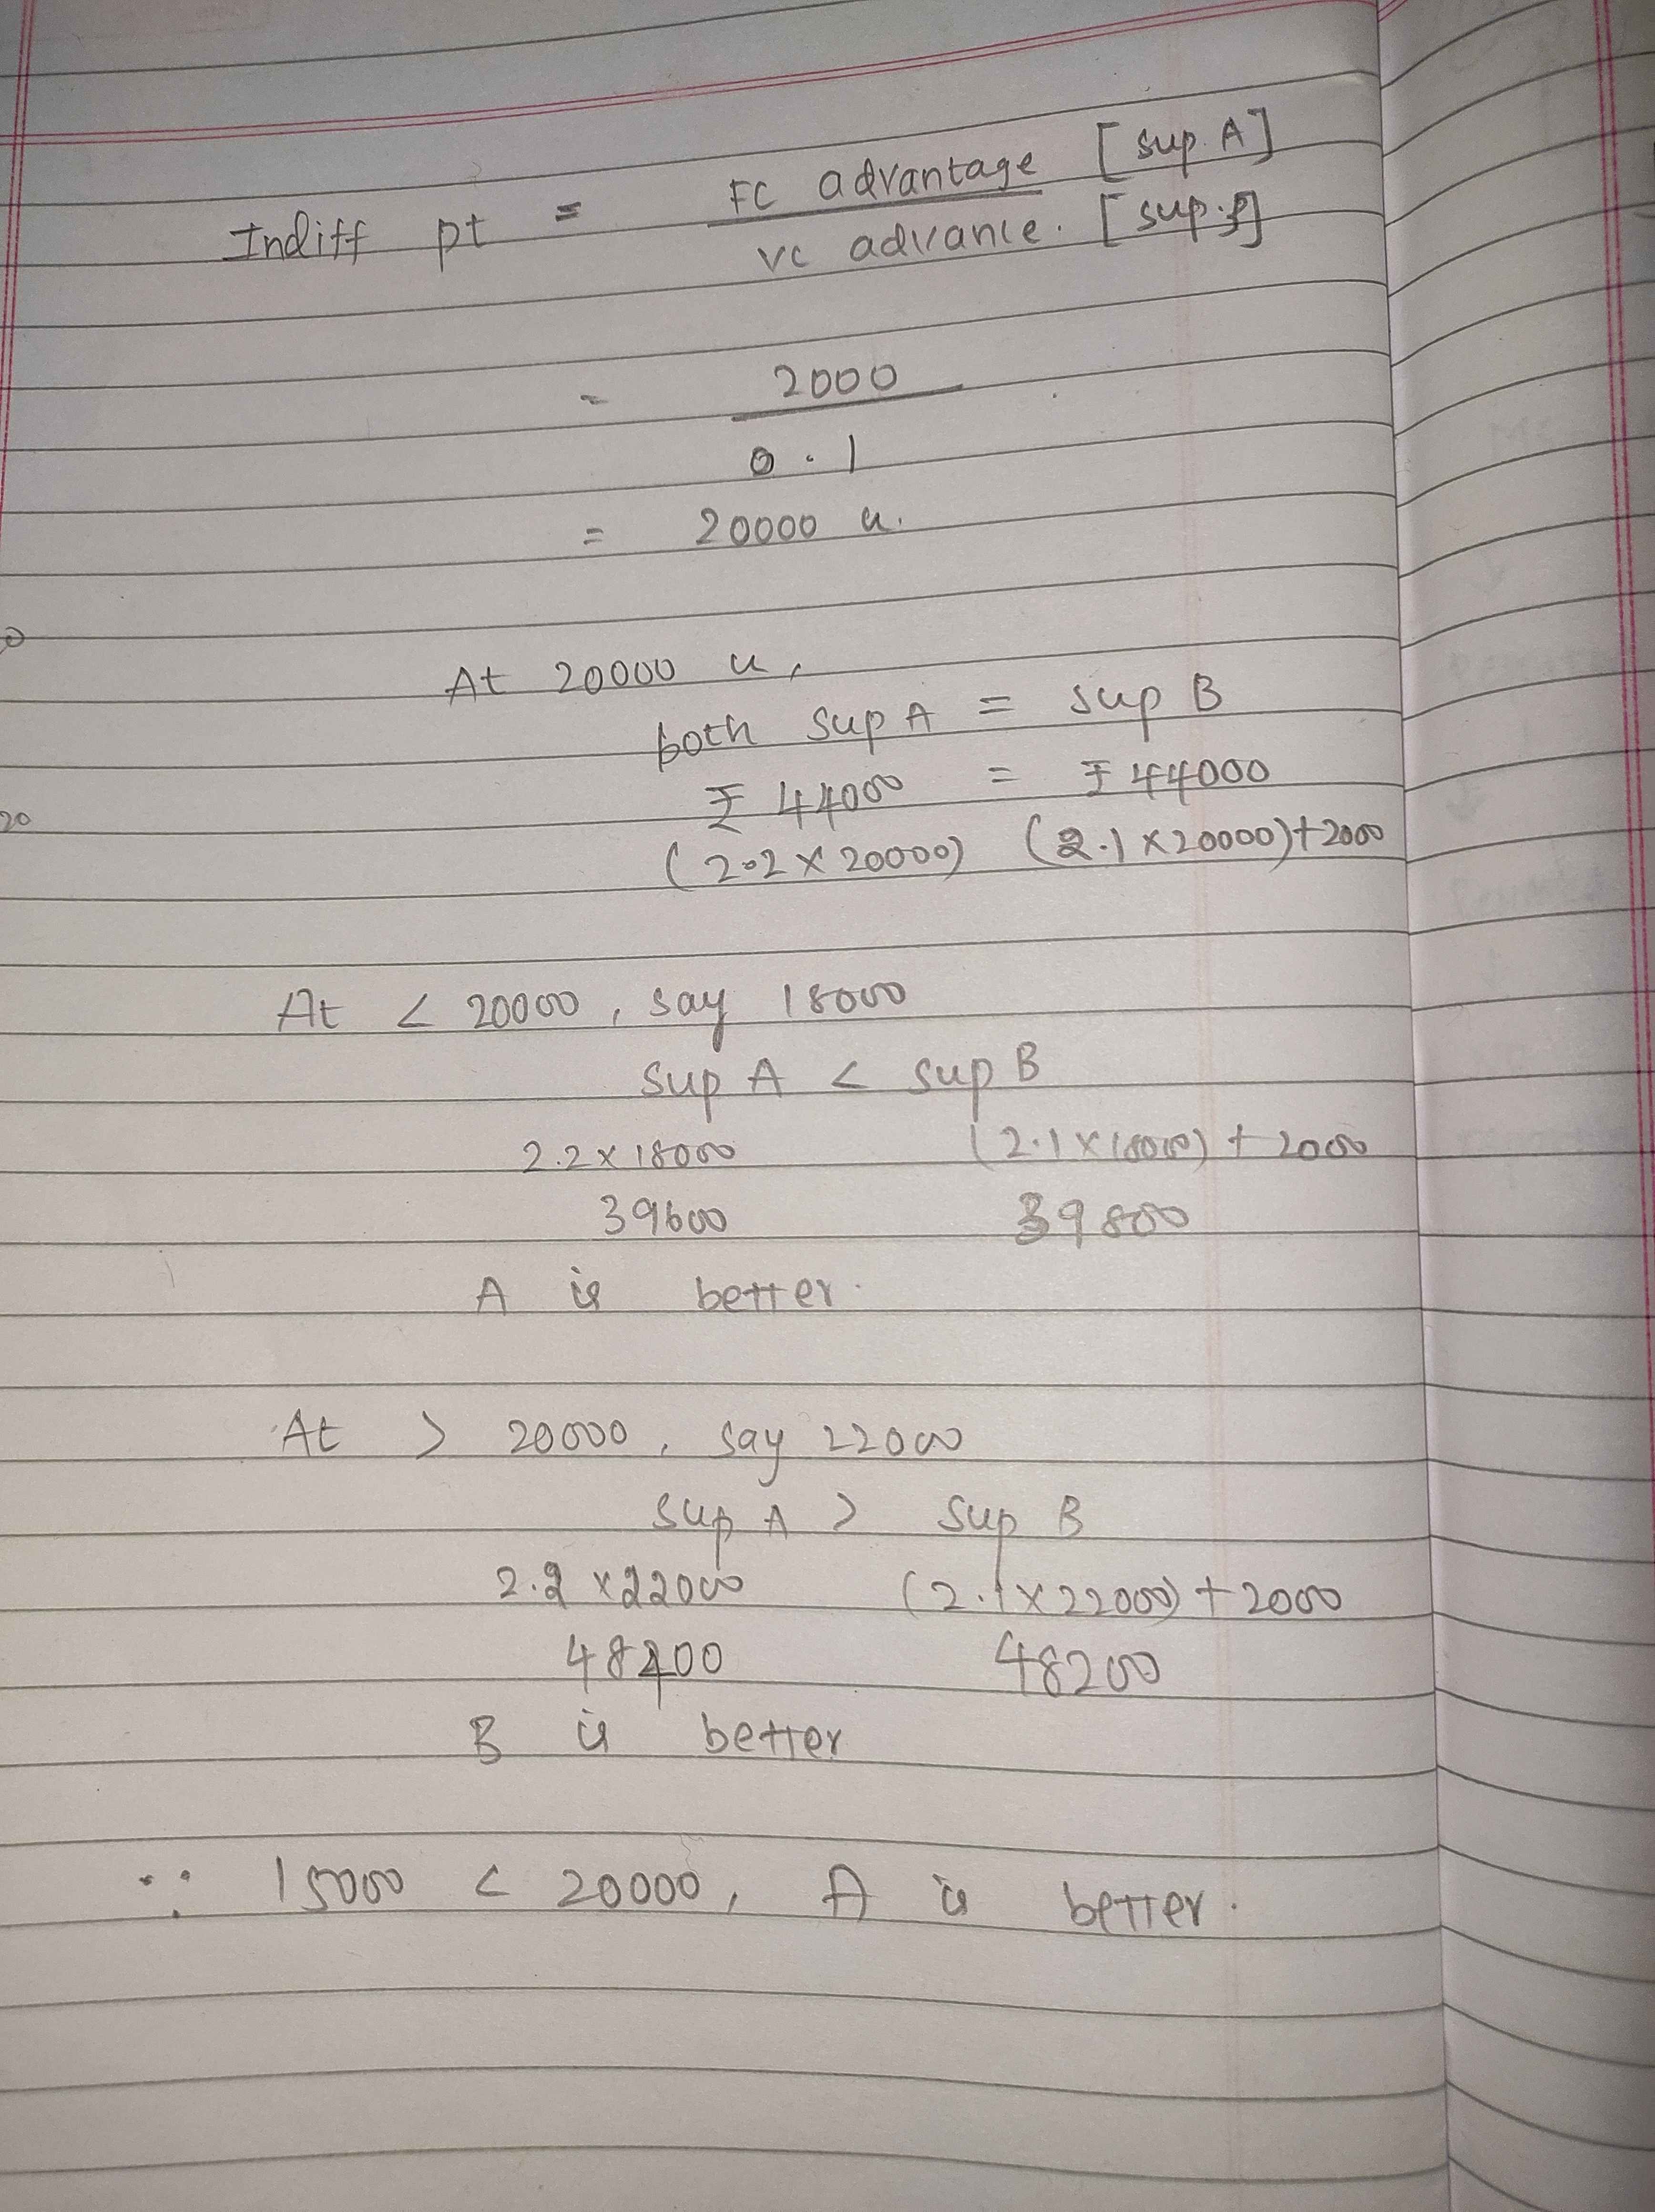 Indiff pt = FC advantage [sup. A]
vc advance. [sup.B]
= 2000
0.1
= 20000 u.
At 20000 u,
both sup A = sup B
₹ 44000 = ₹ 44000
(2.2 x 20000) (2.1 x 20000)+2000
At < 20000, say 18000
sup A < sup B
2.2 x 18000 (2.1 x 18000) + 2000
39600 39800
A is better.
At > 20000, say 22000
sup A > sup B
2.2 x 22000 (2.1 x 22000) + 2000
48400 48200
B is better
∵ 15000 < 20000, A is better.